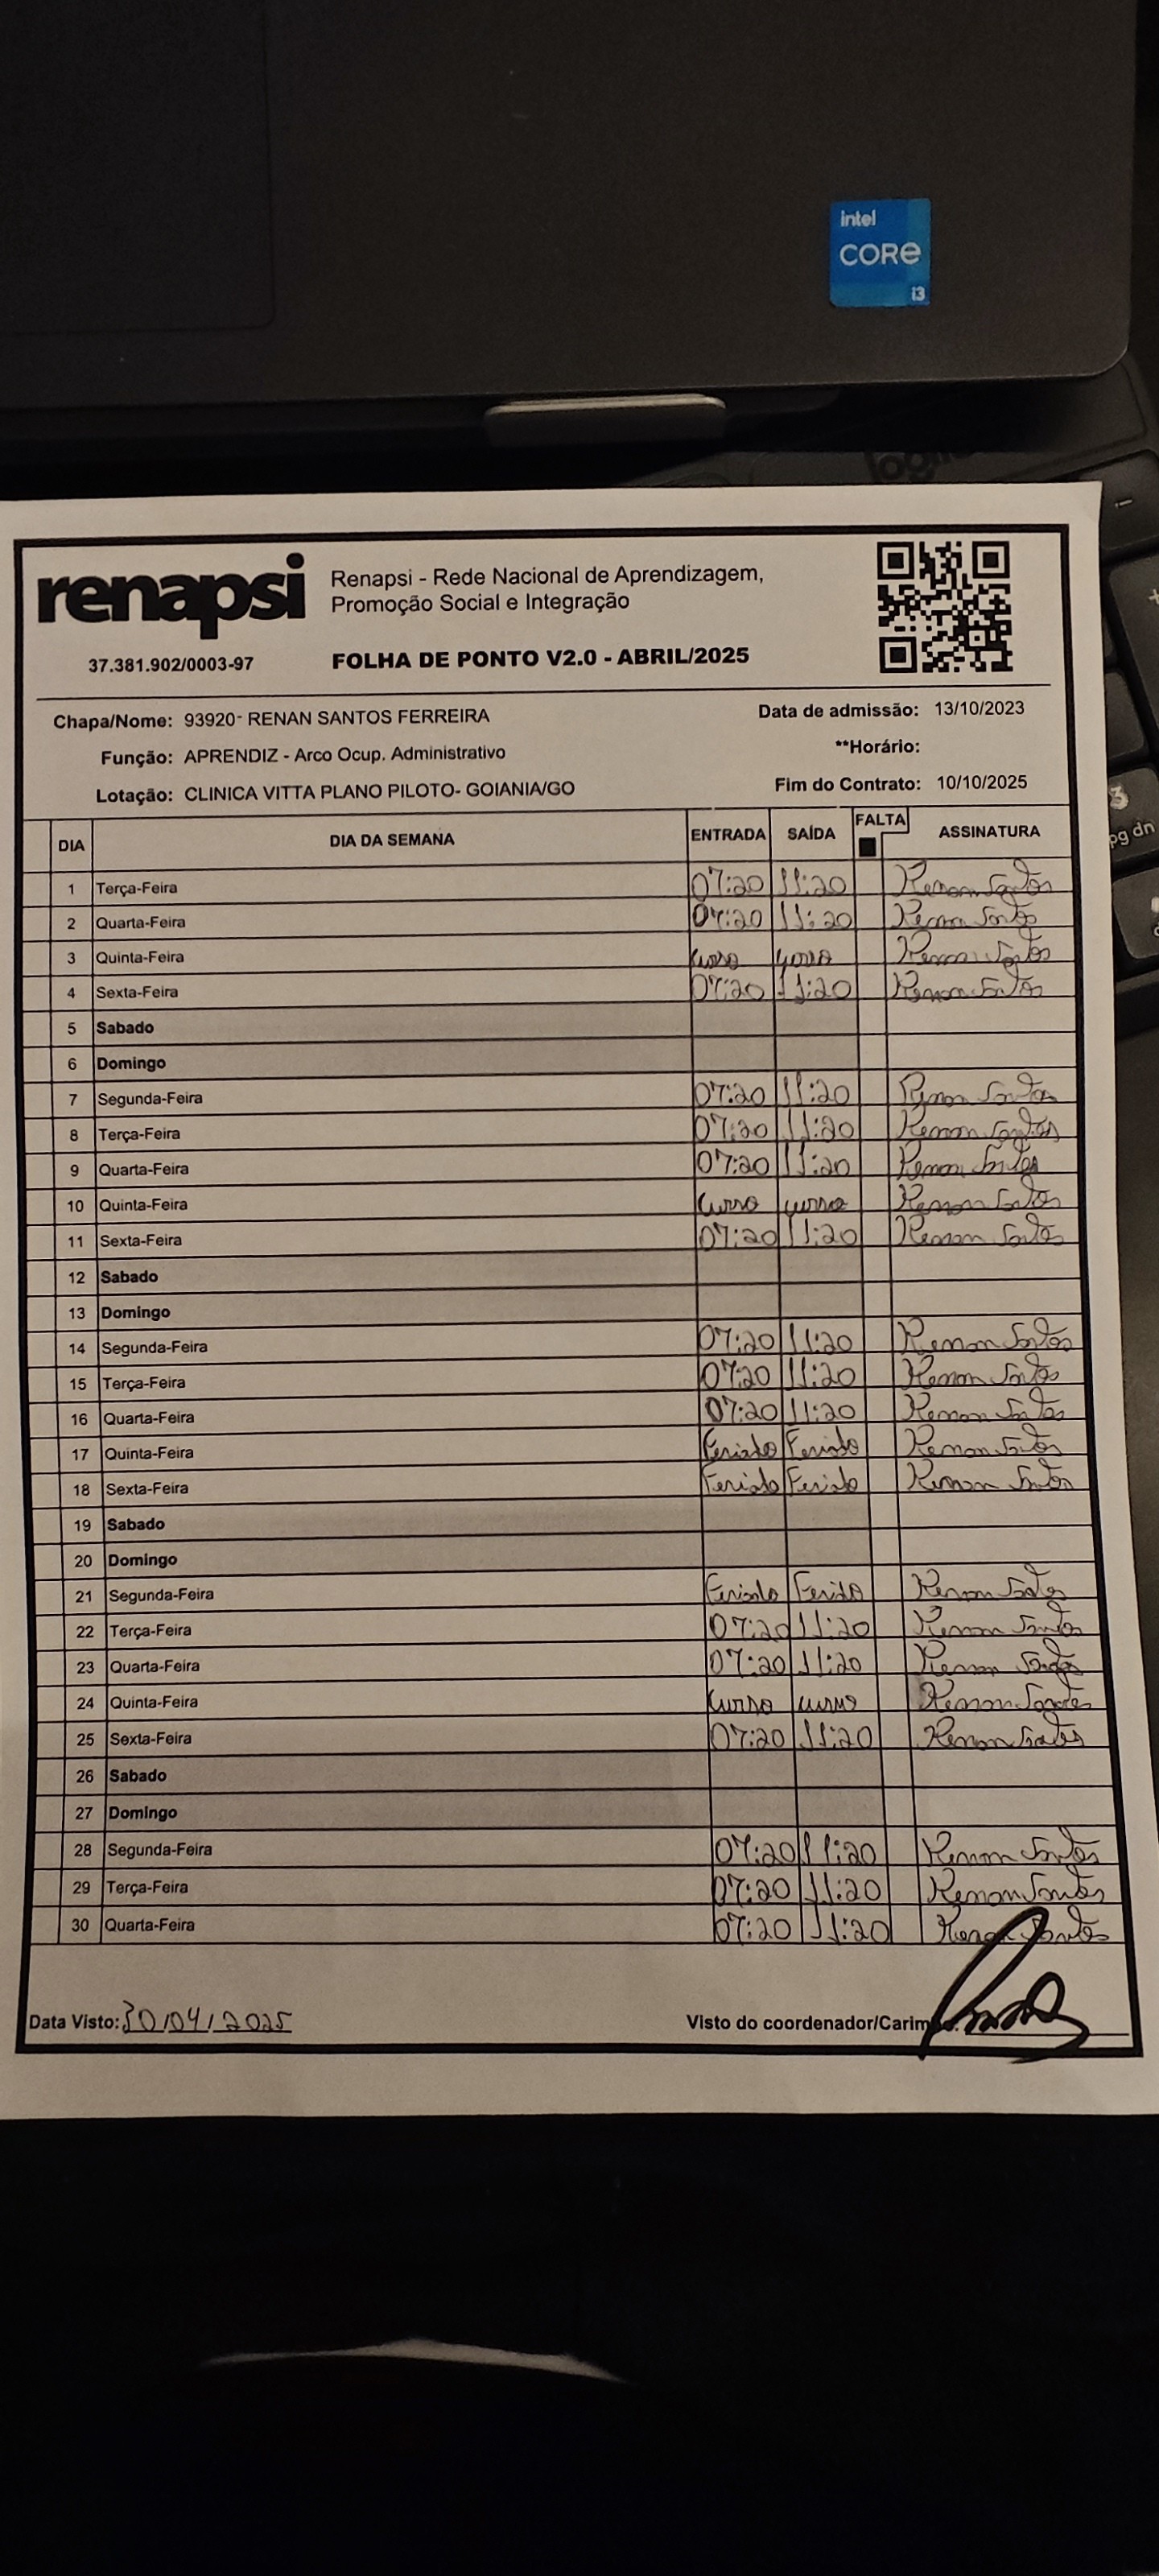 intel
CORe
i3
logi
pg dn
3
renapsi
Renapsi - Rede Nacional de Aprendizagem,
Promoção Social e Integração
37.381.902/0003-97 FOLHA DE PONTO V2.0 - ABRIL/2025
Chapa/Nome: 93920- RENAN SANTOS FERREIRA Data de admissão: 13/10/2023
Função: APRENDIZ - Arco Ocup. Administrativo **Horário:
Lotação: CLINICA VITTA PLANO PILOTO- GOIANIA/GO Fim do Contrato: 10/10/2025
DIA DIA DA SEMANA ENTRADA SAÍDA FALTA ASSINATURA
1 Terça-Feira 07:20 11:20 Renan Santos
2 Quarta-Feira 07:20 11:20 Renan Santos
3 Quinta-Feira curso curso Renan Santos
4 Sexta-Feira 07:20 11:20 Renan Santos
5 Sabado
6 Domingo
7 Segunda-Feira 07:20 11:20 Renan Santos
8 Terça-Feira 07:20 11:20 Renan Santos
9 Quarta-Feira 07:20 11:20 Renan Santos
10 Quinta-Feira curso curso Renan Santos
11 Sexta-Feira 07:20 11:20 Renan Santos
12 Sabado
13 Domingo
14 Segunda-Feira 07:20 11:20 Renan Santos
15 Terça-Feira 07:20 11:20 Renan Santos
16 Quarta-Feira 07:20 11:20 Renan Santos
17 Quinta-Feira Feriado Feriado Renan Santos
18 Sexta-Feira Feriado Feriado Renan Santos
19 Sabado
20 Domingo
21 Segunda-Feira Feriado Feriado Renan Santos
22 Terça-Feira 07:20 11:20 Renan Santos
23 Quarta-Feira 07:20 11:20 Renan Santos
24 Quinta-Feira curso curso Renan Santos
25 Sexta-Feira 07:20 11:20 Renan Santos
26 Sabado
27 Domingo
28 Segunda-Feira 07:20 11:20 Renan Santos
29 Terça-Feira 07:20 11:20 Renan Santos
30 Quarta-Feira 07:20 11:20 Renan Santos
Data Visto: 30/04/2025 Visto do coordenador/Carim